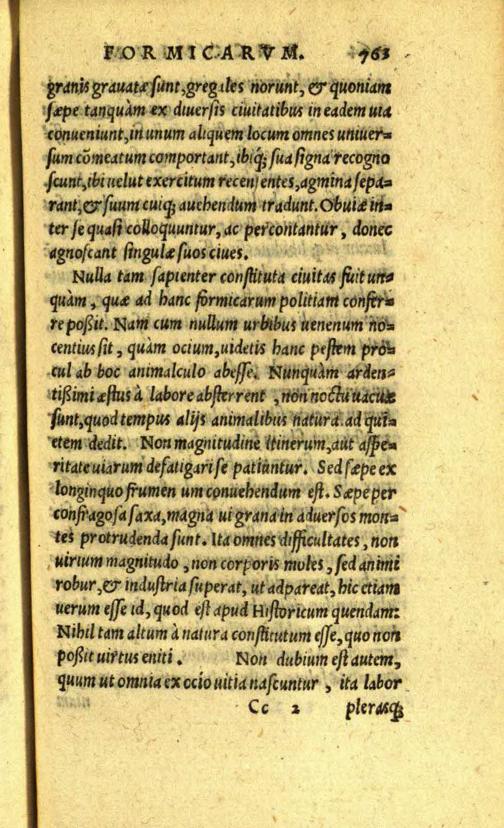 FORMICARVM. 763
granis grauatæ sunt, gregales norunt, & quoniam
sæpe tanquàm ex diuersis ciuitatibus in eadem uia
conueniunt, in unum aliquem locum omnes uniuer=
sum cõmeatum comportant, ibiq́; sua signa recogno
scunt, ibi uelut exercitum recensentes, agmina sepa=
rant, & suum cuiq; auehendum tradunt. Obuiæ in=
ter se quasi colloquuntur, ac percontantur, donec
agnoscant singulæ suos ciues.
Nulla tam sapienter constituta ciuitas fuit un=
quàm, quæ ad hanc formicarum politiam confer=
re poßit. Nam cum nullum urbibus uenenum no=
centius sit, quàm ocium, uidetis hanc pestem pro=
cul ab hoc animalculo abesse. Nunquàm arden=
tißimi æstus à labore absterrent, non noctu uacuæ
sunt, quod tempus alijs animalibus natura ad qui=
etem dedit. Non magnitudine itinerum, aut aspe=
ritate uiarum defatigari se patiuntur. Sed sæpe ex
longinquo frumen um conuehendum est. Sæpe per
confragosa saxa, magna ui grana in aduersos mon=
tes protrudenda sunt. Ita omnes difficultates, non
uirium magnitudo, non corporis moles, sed animi
robur, & industria superat, ut adpareat, hic etiam
uerum esse id, quod est apud Historicum quendam:
Nihil tam altum à natura constitutum esse, quo non
poßit uirtus eniti. Non dubium est autem,
quum ut omnia ex ocio uitia nascuntur, ita labor
Cc 2 plerasq́;